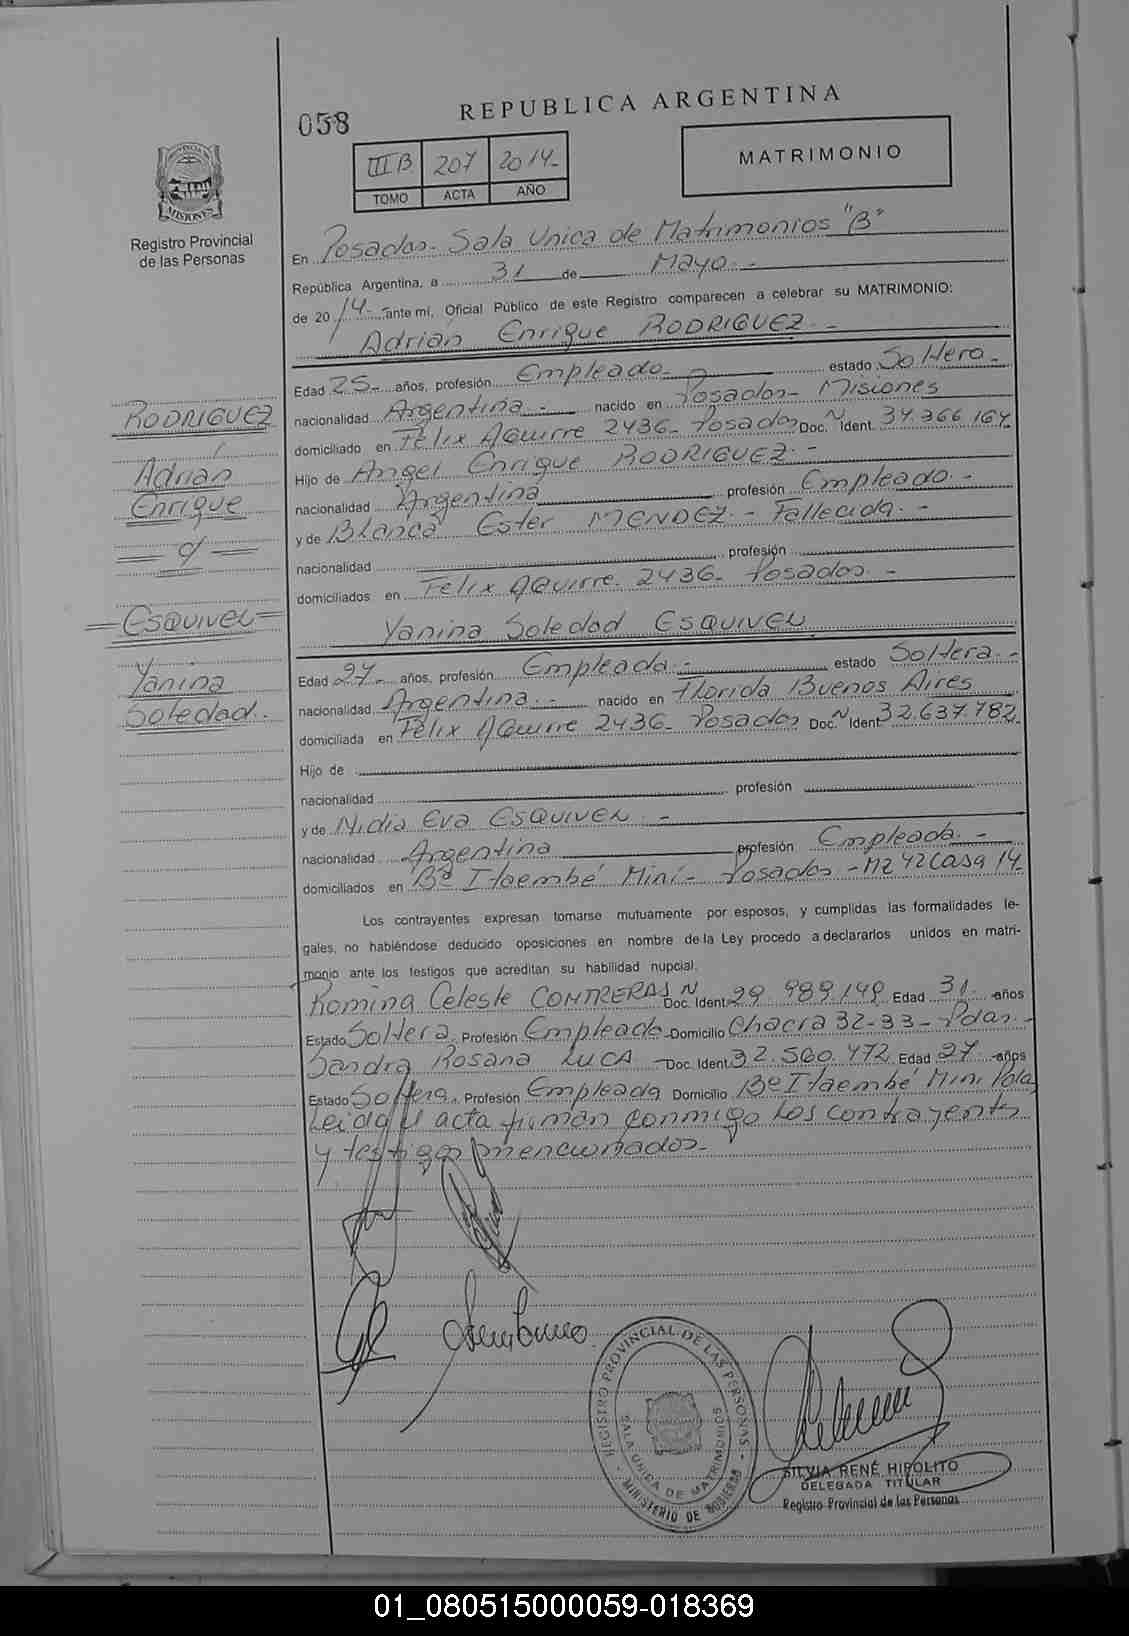 REPUBLICA ARGENTINA
058
III B 207 2014-
TOMO ACTA AÑO
MATRIMONIO
MISIONES
Registro Provincial
de las Personas
En Posadas - Sala Unica de Matrimonios "B"
República Argentina, a 31 de Mayo -
de 2014- ante mí, Oficial Público de este Registro comparecen a celebrar su MATRIMONIO:
Adrián Enrique RODRIGUEZ -
Edad 25- años, profesión Empleado - estado Soltero -
nacionalidad Argentina - nacido en Posadas - Misiones
domiciliado en Félix Aguirre 2436- Posadas Doc. N Ident. 34.366.164
Hijo de Angel Enrique RODRIGUEZ -
nacionalidad Argentina profesión Empleado -
y de Blanca Ester MENDEZ - Fallecida -
nacionalidad profesión
domiciliados en Félix Aguirre 2436- Posadas -
Yanina Soledad ESQUIVEL
Edad 27- años, profesión Empleada - estado Soltera -
nacionalidad Argentina - nacido en Florida Buenos Aires
domiciliada en Félix Aguirre 2436- Posadas Doc. N Ident 32.637.782
Hijo de
nacionalidad profesión
y de Nidia Eva ESQUIVEL -
nacionalidad Argentina profesión Empleada -
domiciliados en Bº Itaembé Miní - Posadas - Mz 42 Casa 14
Los contrayentes expresan tomarse mutuamente por esposos, y cumplidas las formalidades le-
gales, no habiéndose deducido oposiciones en nombre de la Ley procedo a declararlos unidos en matri-
monio ante los testigos que acreditan su habilidad nupcial.
Romina Celeste CONTRERAS Doc. N Ident. 29.989.149 Edad 31- años
Estado Soltera Profesión Empleada Domicilio Chacra 32-33- Pdas -
Sandra Rosana LUCA - Doc. Ident 32.560.472 Edad 27- años
Estado Soltera Profesión Empleada Domicilio Bº Itaembé Mini Pdas
Leida el acta firman conmigo los contrayentes
y testigos mencionados -
RODRIGUEZ
Adrián
Enrique
= c/ =
=ESQUIVEL=
Yanina
Soledad
REGISTRO PROVINCIAL DE LAS PERSONAS
SALA UNICA DE MATRIMONIOS
MINISTERIO DE GOBIERNO
SILVIA RENÉ HIPOLITO
DELEGADA TITULAR
Registro Provincial de las Personas
01_080515000059-018369